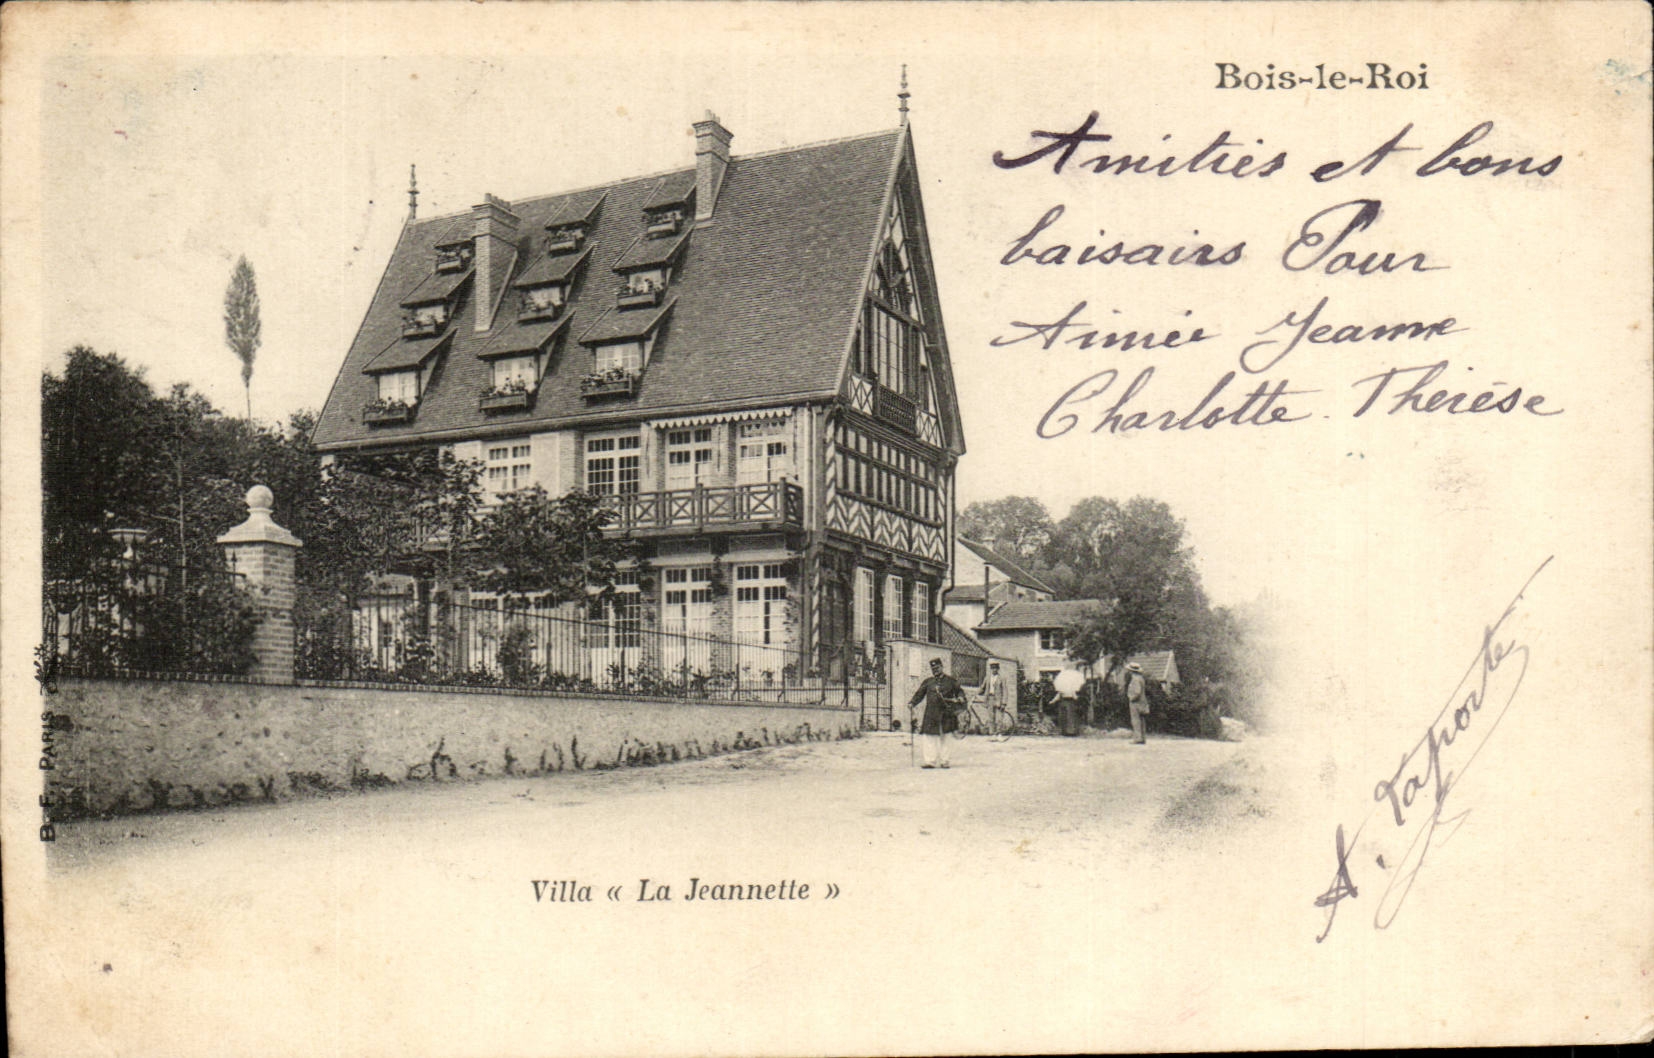 Bois-le-Roi
Amitiés et bons
baisairs Pour
Aimée Jeanne
Charlotte. Thérèse
A. Laporte
Villa « La Jeannette »
B. F., PARIS